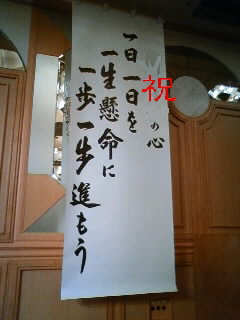 祝
の心
一日一日を
一生懸命に
一歩一歩進もう